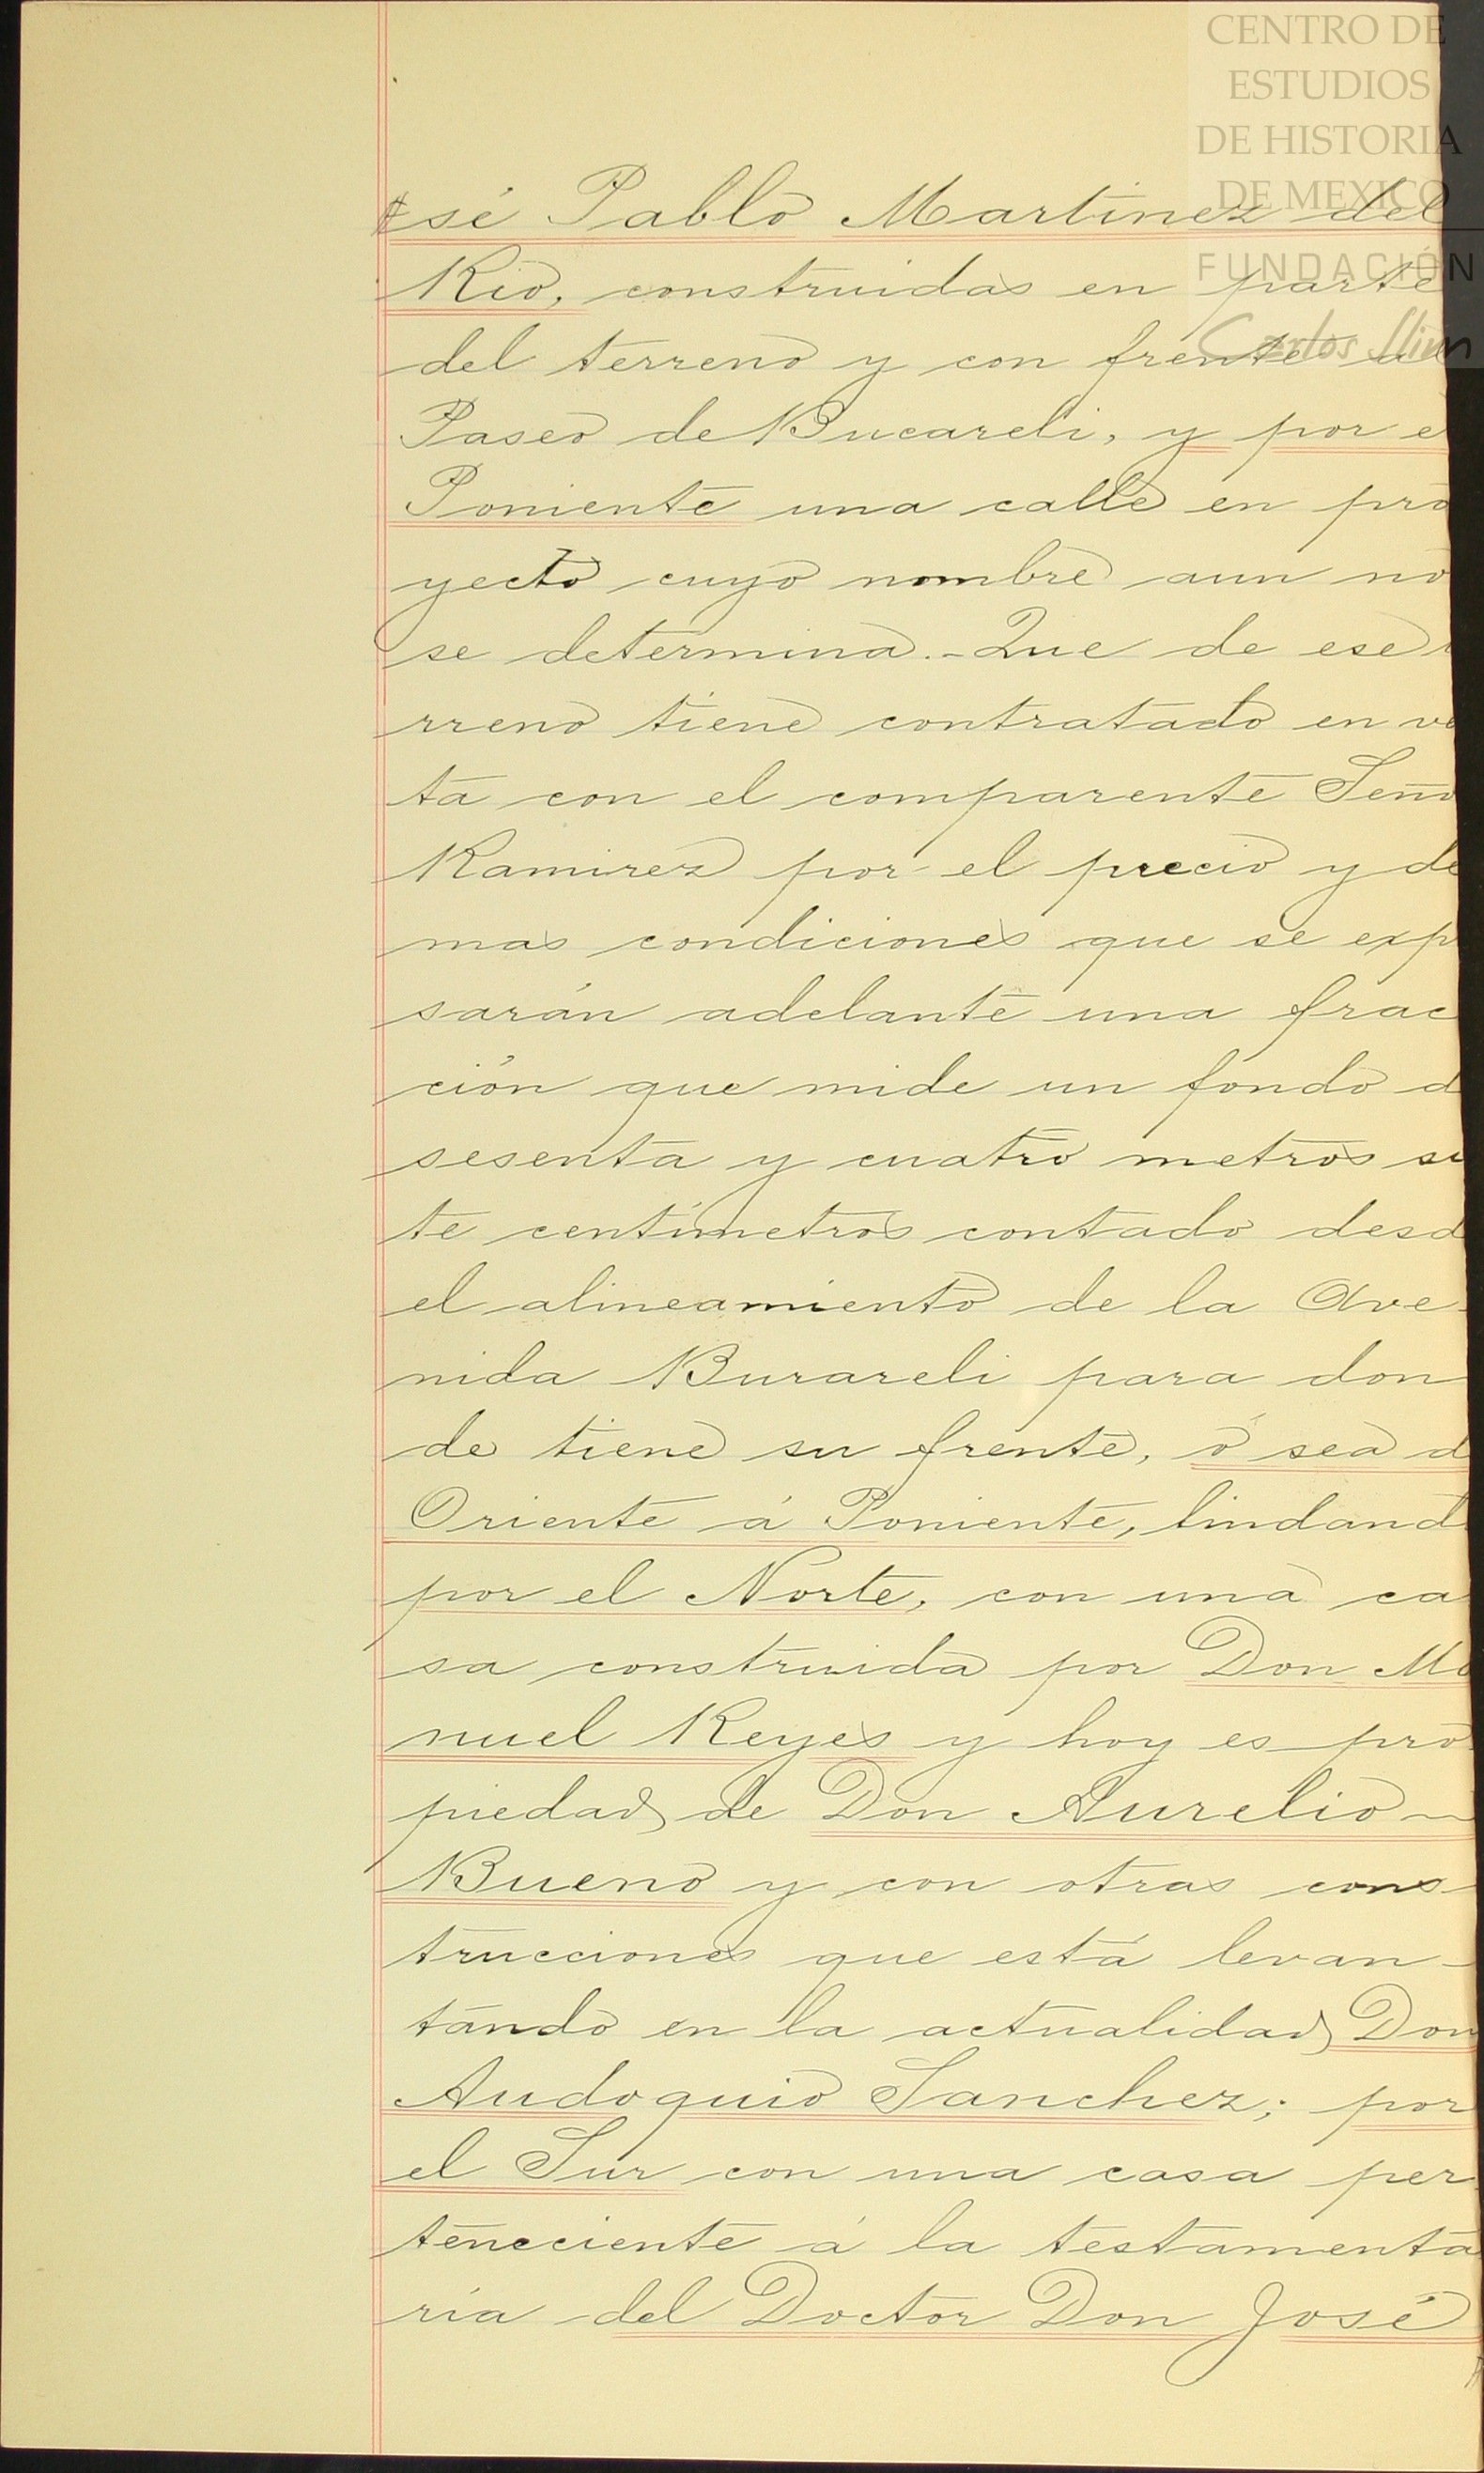 CENTRO DE
ESTUDIOS
DE HISTORIA
DE MEXICO
FUNDACIÓN
Carlos Slim
sé Pablo Martinez del
Rio, construidas en parte
del terreno y con frente al
Paseo de Bucareli, y por e
Poniente una calle en pro
yecto cuyo nombre aun no
se determina.- Que de ese
rreno tiene contratado en ve
ta con el comparente Seño
Ramirez por el precio y de
mas condiciones que se exp
sarán adelante una frac
ción que mide un fondo d
sesenta y cuatro metros si
te centímetros contado desd
el alineamiento de la Ave-
nida Burareli para don
de tiene su frente, ó sea d
Oriente á Poniente, lindand
por el Norte, con una ca
sa construida por Don Ma
nuel Reyes y hoy es pro
piedad de Don Aurelio -
Bueno y con otras cons-
trucciones que está levan-
tando en la actualidad Don
Audoquio Sanchez; por
el Sur con una casa per
teneciente á la testamenta
ría del Doctor Don José